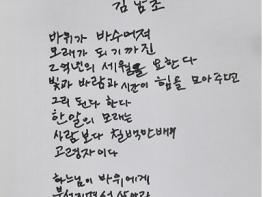 김남조
바위가 바수어져
모래가 되기까진
2억년의 세월을 요한다
빛과 바람과 시간이 힘을 모아주고
그리 된다 한다
한알의 모래는
사람보다 천백만배
고령자이다
하느님이 바위에게